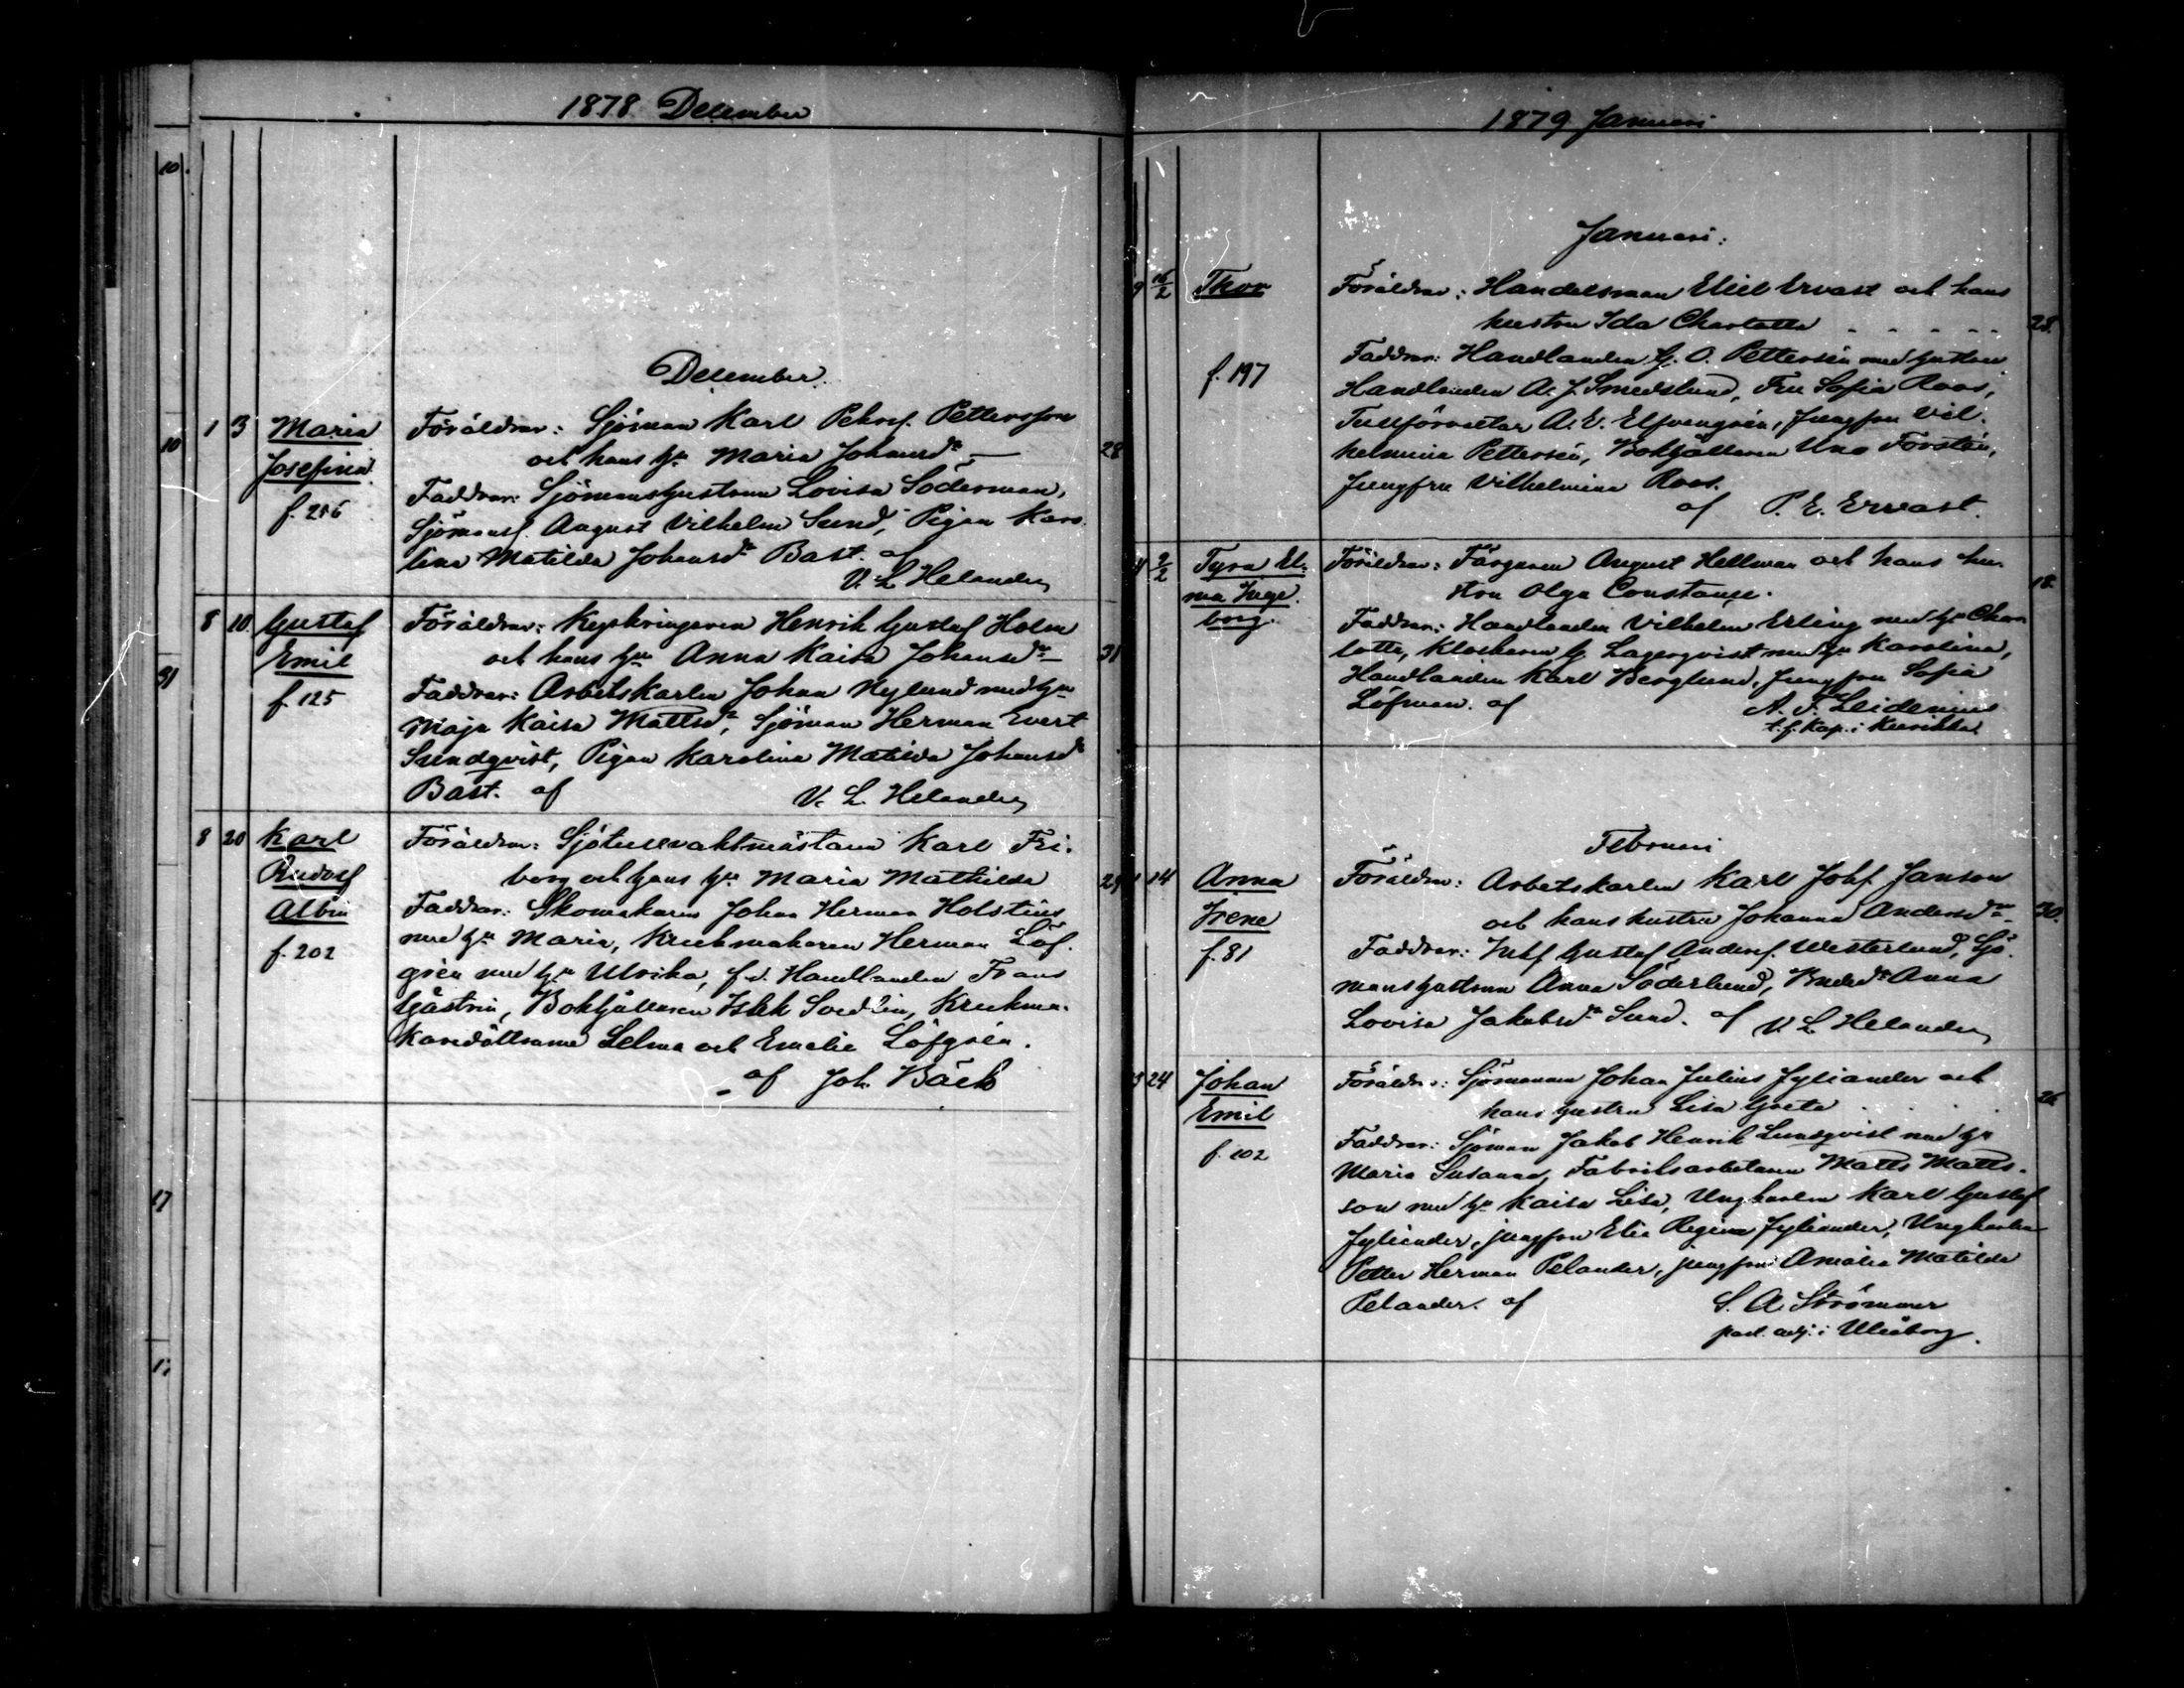 1878 December
December.
1 3 Maria Föräldrar: Sjöman Karl Petersf. Pettersson
Josefina och hans h:u Maria Johansd:r 28
f. 216 Faddrar: Sjömanshustrun Lovisa Söderman,
Sjömansf. August Vilhelm Sund, Pigan Karo-
lina Matilda Johansd:r Bast. af
V. L. Helander
8 10. Gustaf Föräldrar: Kypkringaren Henrik Gustaf Holm
Emil och hans h:u Anna Kaisa Johansd:r 31
f. 125 Faddrar: Arbetskarlen Johan Nylund med h:u
Maja Kaisa Mattsd:r, Sjöman Herman Evert
Sundqvist, Pigan Karolina Matilda Johansd:r
Bast. af V. L. Helander
8 20 Karl Föräldrar: Sjötullvaktmästaren Karl Fri-
Rudolf berg och hans h:u Maria Mathilda 29
Albin Faddrar: Skomakaren Johan Herman Holstius
med h:u Maria, Krukmakaren Herman Löf-
f. 202 grén med h:u Ulrika, f.d. Handlanden Frans
Hjästrin, Bokhållaren Isak Svedlin, Krukma-
karedöttrarne Selma och Emelie Löfgrén.
af Joh. Bäck
1879 Januari
Januari:
9 16/2 Thor Föräldrar: Handelsman Eliel Ervast och hans
hustru Ida Charlotta 28.
f. 197 Faddrar: Handlanden G. O. Pettersén med hustru
Handlanden A. J. Smedslund, Fru Sofia Roos,
Tullförvaltar A. E. Elfvengrén, Jungfru Vil-
helmina Pettersén, Bokhållaren Uno Forstén,
Jungfru Vilhelmina Roos.
af P. E. Ervast.
9/2 Tyra El- Föräldrar: Färgaren August Hellman och hans hu-
ma Inge- stru Olga Constance. 18.
borg. Faddrar: Handlanden Vilhelm Erling med h:u Char-
lotta, Klockaren G. Lagerqvist med h:u Karolina,
Handlanden Karl Berglund, Jungfru Sofia
Löfman. af A. F. Leidenius
t. f. Kap. i Kuivikka
Februari
14 Anna Föräldrar: Arbetskarlen Karl Johf. Janson
Irene och hans hustru Johanna Andersd:r 30.
f. 81 Faddrar: Inhf Gustaf Andersf. Westerlund, Sjö-
manshustrun Anna Söderlund, Anna
Lovisa Jakobsd:r Sund. af V. L. Helander
24 Johan Föräldrar: Sjömannen Johan Julius Jyliander och
Emil hans hustru Lisa Greta 26
f. 102 Faddrar: Sjöman Jakob Henrik Lundqvist med h:u
Maria Susanna, Fabriksarbetaren Matts Matts-
son med h:u Kaisa Lisa, Ungkarlen Karl Gustaf
Jyliander, jungfru Elin Regina Jyliander, Ungkarlen
Petter Herman Pelander, jungfru Amalia Matilda
Pelander. af S. A. Strömmer
past. adj. i Uleåborg.